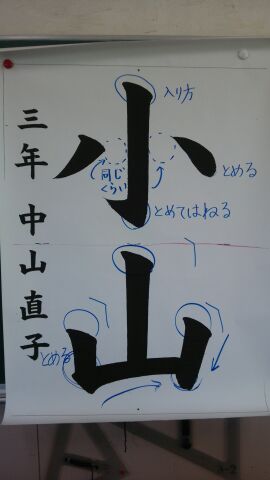 小山
三年 中山直子
入り方
とめる
同じ
くらい
とめてはねる
とめる